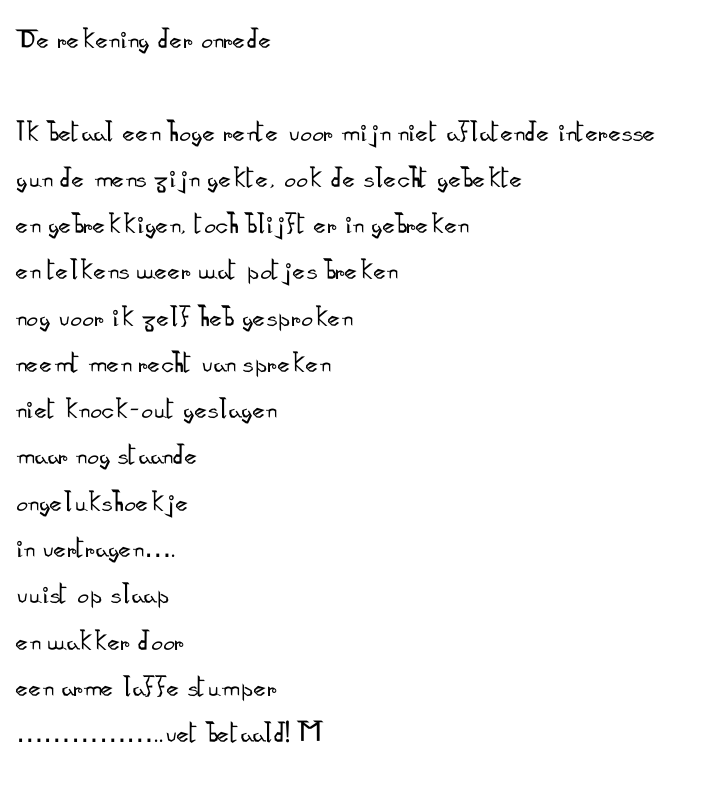 De rekening der onrede
Ik betaal een hoge rente voor mijn niet aflatende interesse
gun de mens zijn gekte, ook de slecht gebekte
en gebrekkigen, toch blijft er in gebreken
en telkens weer wat potjes breken
nog voor ik zelf heb gesproken
neemt men recht van spreken
niet knock-out geslagen
maar nog staande
ongelukshoekje
in vertragen....
vuist op slaap
en wakker door
een arme laffe stumper
.................vet betaald! M